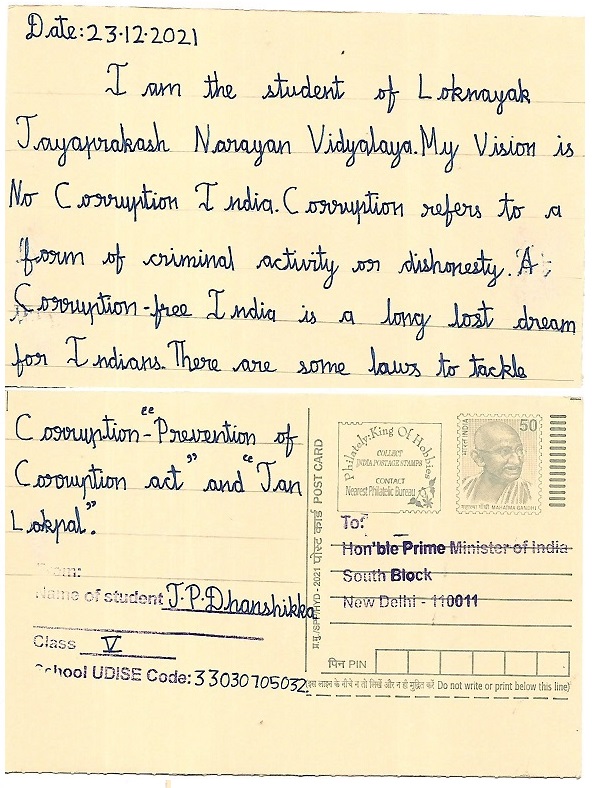 Date:23.12.2021
I am the student of Loknayak
Jayaprakash Narayan Vidyalaya. My Vision is
No Corruption India. Corruption refers to a
form of criminal activity or dishonesty. A
Corruption-free India is a long lost dream
for Indians. There are some laws to tackle
Corruption "Prevention of
Corruption act" and "Jan
Lokpal."
From:
Name of student J.P.Dhanshikka
Class V
School UDISE Code: 33030705032
पोस्ट कार्ड POST CARD
Philately:King Of Hobbies
COLLECT
INDIA POSTAGE STAMPS
CONTACT
Nearest Philatelic Bureau
भारत INDIA
50
महात्मा गाँधी MAHATMA GANDHI
To:
Hon'ble Prime Minister of India
South Block
New Delhi - 110011
पिन PIN
इस लाइन के नीचे न तो लिखें और न ही मुद्रित करें Do not write or print below this line)